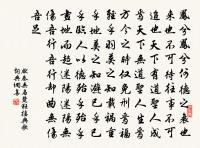 鳳兮鳳兮何如德之衰也
來世不可待往世不可追
也天下有道聖人成
焉天下無道聖人生焉
方今之時僅免刑焉福
輕乎羽莫之知載禍重
乎地莫之知避已乎已
乎臨人以德殆乎殆乎
畫地而趨迷陽迷陽無
傷吾行吾行卻曲無傷
吾足
先秦無名楚狂接輿歌
詞典網書